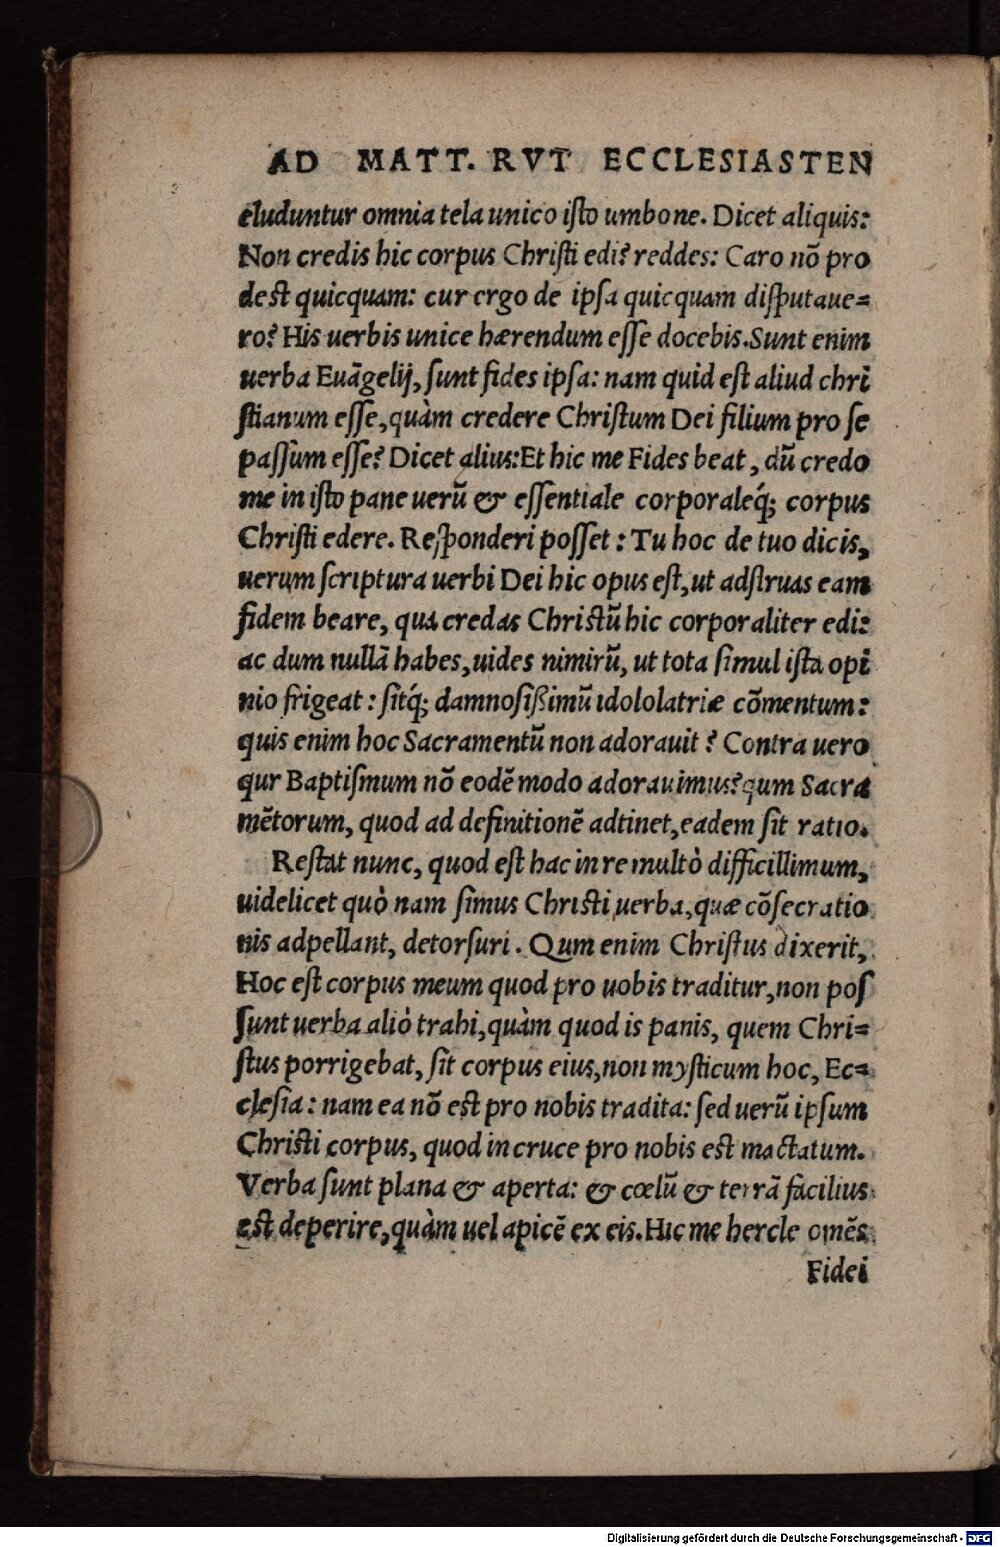 AD MATT. RVT ECCLESIASTEN
eluduntur omnia tela unico isto umbone. Dicet aliquis:
Non credis hic corpus Christi edi? reddes: Caro nō pro
dest quicquam: cur ergo de ipsa quicquam disputaue=
ro? His uerbis unice hærendum esse docebis. Sunt enim
uerba Euāgelij, sunt fides ipsa: nam quid est aliud chri
stianum esse, quàm credere Christum Dei filium pro se
passum esse? Dicet alius: Et hic me Fides beat, dū credo
me in isto pane uerū & essentiale corporaleq́; corpus
Christi edere. Responderi posset: Tu hoc de tuo dicis,
uerum scriptura uerbi Dei hic opus est, ut adstruas eam
fidem beare, qua credas Christū hic corporaliter edi:
ac dum nullā habes, uides nimirū, ut tota simul ista opi
nio frigeat: sitq́; damnosißimū idololatriæ cōmentum:
quis enim hoc Sacramentū non adorauit? Contra uero
qur Baptismum nō eodē modo adorauimus? qum Sacra
mētorum, quod ad definitionē adtinet, eadem sit ratio.
Restat nunc, quod est hac in re multò difficillimum,
uidelicet quò nam simus Christi uerba, quæ cōsecratio
nis adpellant, detorsuri. Qum enim Christus dixerit,
Hoc est corpus meum quod pro uobis traditur, non pos
sunt uerba aliò trahi, quàm quod is panis, quem Chri=
stus porrigebat, sit corpus eius, non mysticum hoc, Ec=
clesia: nam ea nō est pro nobis tradita: sed uerū ipsum
Christi corpus, quod in cruce pro nobis est mactatum.
Verba sunt plana & aperta: & cœlū & terrā facilius
est deperire, quàm uel apicē ex eis. Hic me hercle omēs
Fidei
Digitalisierung gefördert durch die Deutsche Forschungsgemeinschaft - DFG